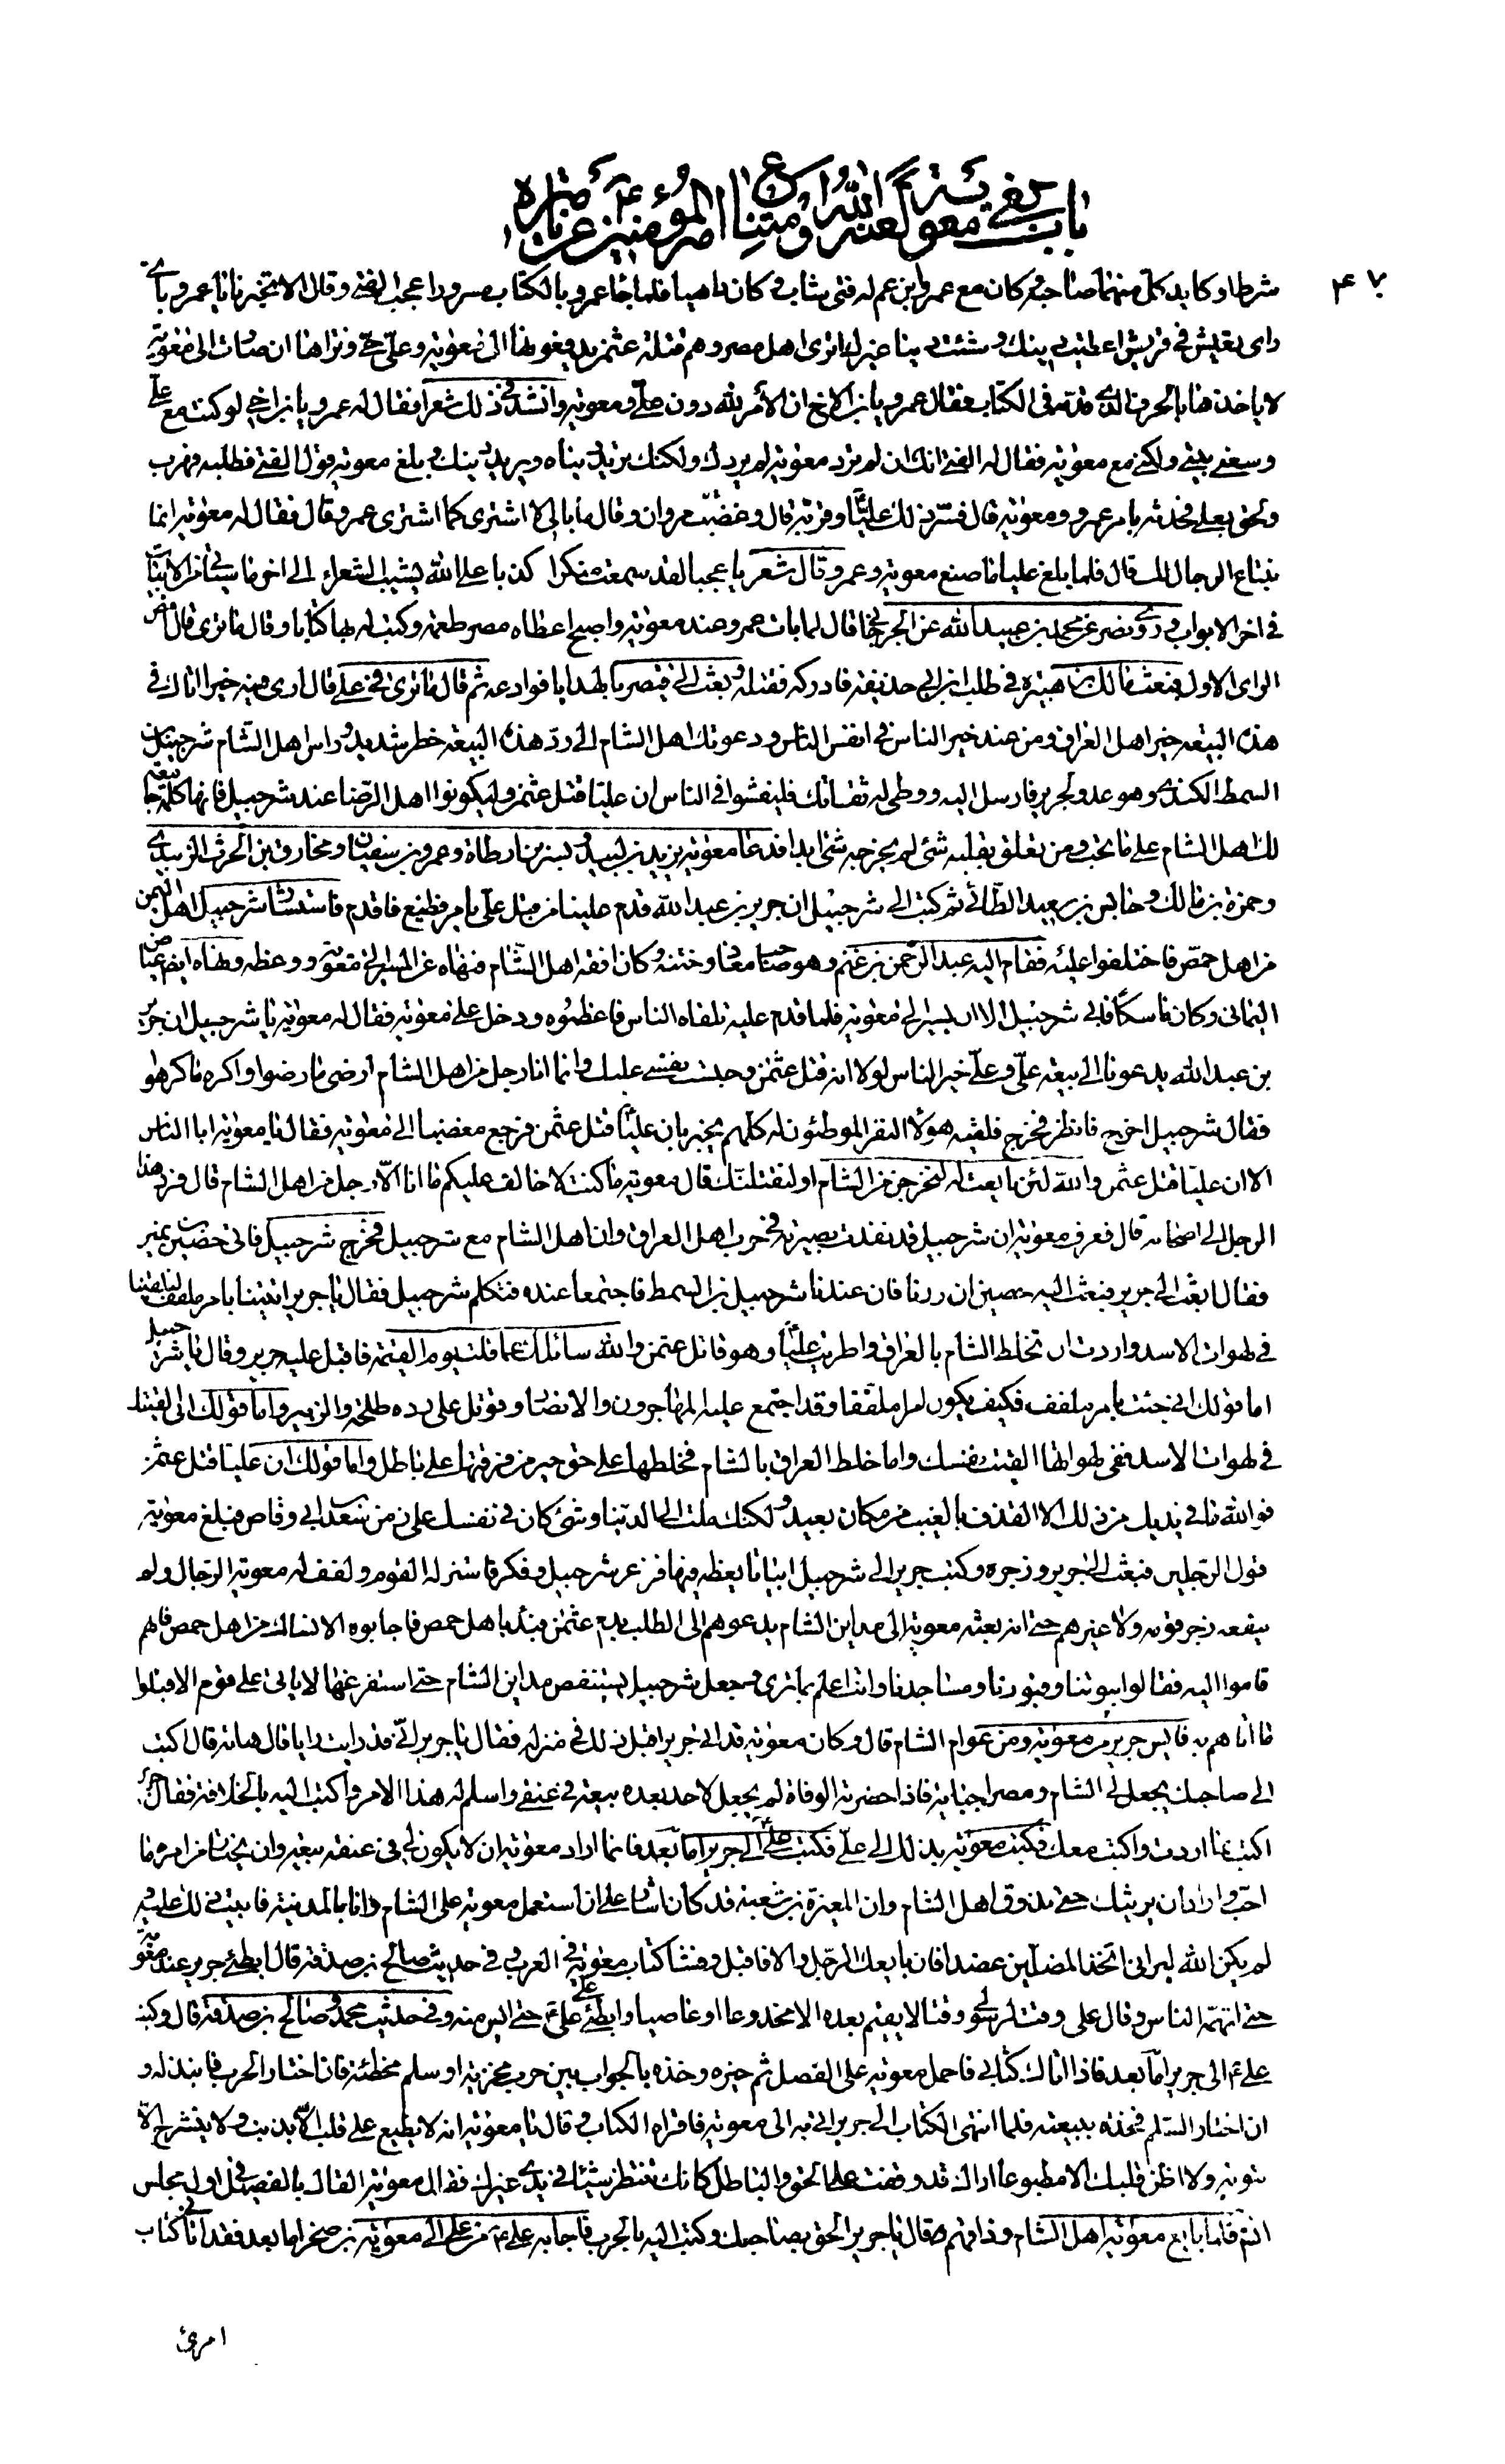 باب بغي معوية لعنه الله و امتناع امير المؤمنين ع عن تأميره
٤٧
شرطا و كايد كل منهما صاحبه و كان مع عمرو ابن عم له فتى شاب و كان داهيا فلما جاء عمرو بالكتاب مسرورا عجب الفتى و قال الا تخبرني يا عمرو باي
راى تعيش في قريش اعطيت دينك و منيت دنيا غيرك اترى اهل مصر و هم قتلة عثمن يدفعونها الى معوية و علي حي و تراها ان صارت الى معوية
لا ياخذها بالحرف الذي قدمه في الكتاب فقال عمرو يا بن الاخ ان الأمر لله دون علي و معوية و انشد في ذلك شعرا فقال له عمرو يا بن اخي لو كنت مع علي
وسعني بيتي و لكني مع معوية فقال له الفتى انك ان لم ترد معوية لم يردك و لكنك تريد دنياه و يريد دينك و بلغ معوية قول الفتى فطلبه فهرب
و لحق بعلي فحدثه بامر عمرو و معوية قال فسر ذلك عليا و قربه قال و غضب مروان و قال ما بالي لا اشترى كما اشترى عمرو قال فقال له معوية انما
نبتاع الرجال لك قال فلما بلغ عليا ما صنع معوية و عمرو قال شعر يا عجبا لقد سمعت منكرا كذبا على الله يشيب الشعراء الى اخر ما سيأتي من الابيات
في اخر الابواب و روى نصر عن محمد بن عبيد الله عن الجرجاني قال لما بات عمرو عند معوية و اصبح اعطاه مصر طعمة و كتب له بها كتابا و قال ما ترى قال امض
الراى الاول فبعث مالك بن هبيرة في طلب ابن ابي حذيفة فادركه فقتله و بعث الى قيصر بالهدايا فوادعه ثم قال ما ترى في علي قال ارى فيه خيرا اتاك في
هذه البيعة خير اهل العراق و من عند خير الناس في انفس الناس و دعوتك اهل الشام الى رد هذه البيعة خطر شديد و راس اهل الشام شرحبيل بن
السمط الكندي و هو عدو لجرير فارسل اليه و وطئ له ثقاتك فليفشوا في الناس ان عليا قتل عثمن و ليكونوا اهل الرضا عند شرحبيل فانها كلمة جامعة
لك اهل الشام على ما تحب و من تعلق بقلبه شئ لم يخرجه شئ ابدا فدعا معوية يزيد بن لبيد و بسر بن ارطاة و عمرو بن سفيان و مخارق بن الحرث الزبيدي
و حمزة بن مالك و حابس بن سعيد الطائي ثم كتب الى شرحبيل ان جرير بن عبد الله قدم علينا من قبل علي بامر فظيع فاقدم فاستشار شرحبيل اهل اليمن
من اهل حمص فاختلفوا عليه فقام اليه عبد الرحمن بن غنم و هو صاحب معاذ و ختنه و كان افقه اهل الشام فنهاه عن المسير الى معوية و وعظه و نهاه ايضا عياض
اليماني و كان ناسكا فابى شرحبيل الا ان يسير الى معوية فلما قدم عليه تلقاه الناس فاعظموه و دخل على معوية فقال له معوية يا شرحبيل ان جرير
بن عبد الله يدعونا الى بيعة علي و علي خير الناس لولا انه قتل عثمن و حبست نفسي عليك و انما انا رجل من اهل الشام ارضى ما رضوا و اكره ما كرهوا
فقال شرحبيل اخرج فانظر فخرج فلقيه هؤلاء النفر الموطئون له كلهم يخبر بان عليا قتل عثمن فرجع مغضبا الى معوية فقال يا معوية ابا الناس
الا ان عليا قتل عثمن و الله لئن بايعت له لنخرجن من الشام او لنقتلنك قال معوية ما كنت لاخالف عليكم ما انا الا رجل من اهل الشام قال فرد هذا
الرجل الى صاحبه قال فعرف معوية ان شرحبيل قد نفذت بصيرته في حرب اهل العراق و ان اهل الشام مع شرحبيل فخرج شرحبيل فاتى حصين بن نمير
فقال ابعث الى جرير فبعث اليه حصين ان زرنا فان عندنا شرحبيل بن السمط فاجتمعا عنده فتكلم شرحبيل فقال يا جرير اتيتنا بامر ملفف لتلقينا
في لهوات الاسد و اردت ان تخلط الشام بالعراق و اطريت عليا و هو قاتل عثمن و الله سائلك عما قلت يوم القيمة فاقبل عليه جرير و قال يا شرحبيل
اما قولك اني جئت بامر ملفف فكيف يكون امرا ملففا و قد اجتمع عليه المهاجرون و الانصار و قوتل على رده طلحة و الزبير و اما قولك اني القيتك
في لهوات الاسد ففي لهواتها القيت نفسك و اما خلط العراق بالشام فخلطها على حق خير من فرقتها على باطل و اما قولك ان عليا قتل عثمن
فو الله ما في يديك من ذلك الا القذف بالغيب من مكان بعيد و لكنك ملت الى الدنيا و شئ كان في نفسك على زمن سعد بن ابي وقاص فبلغ معوية
قول الرجلين فبعث الى جرير و زجره و كتب جرير الى شرحبيل ابياتا يعظه فيها فزعر شرحبيل و فكر فاستزله القوم و لفف له معوية الرجال و لم
ينفعه زجر قومه و لا غيرهم حتى انه بعثه معوية الى مداين الشام يدعوهم الى الطلب بدم عثمن فبدأ باهل حمص فاجابوه الا نساك من اهل حمص فانهم
قاموا اليه فقالوا بيوتنا و قبورنا و مساجدنا و انت اعلم بما ترى و جعل شرحبيل يستنهض مداين الشام حتى استفرغها لا ياتي على قوم الا قبلوا
ما اتاهم به فايس جرير من معوية و من عوام الشام قال و كان معوية قد اتى جريرا قبل ذلك في منزله فقال يا جرير اني قد رايت رايا قال هاته قال اكتب
الى صاحبك يجعل لي الشام و مصر جباية فاذا حضرته الوفاة لم يجعل لاحد بعده بيعة في عنقي و اسلم له هذا الامر و اكتب اليه بالخلافة فقال جرير
اكتب بما اردت و اكتب معك فكتب معوية بذلك الى علي فكتب علي ع الى جرير اما بعد فانما اراد معوية ان لا يكون لي في عنقه بيعة و ان يختار من امره ما
احب و اراد ان يريثك حتى يذوق اهل الشام و ان المغيرة بن شعبة قد كان اشار علي ان استعمل معوية على الشام و انا بالمدينة فابيت ذلك عليه
لم يكن الله ليراني اتخذ المضلين عضدا فان بايعك الرجل و الا فاقبل و فشا كتاب معوية في العرب و في حديث صالح بن صدقة قال ابطئ جرير عند معوية
حتى اتهمه الناس و قال علي وقت لرسولي وقتا لا يقيم بعده الا مخدوعا او عاصيا و ابطئ على علي ع حتى ايس منه و في حديث محمد و صالح بن صدقة قال و كتب
علي ع الى جرير اما بعد فاذا اتاك كتابي فاحمل معوية على الفصل ثم خيره و خذه بالجواب بين حرب مخزية او سلم محظئة فان اختار الحرب فانبذ له و
ان اختار السلم فخذه ببيعته فلما انتهى الكتاب الى جرير اتى به الى معوية فاقراه الكتاب و قال يا معوية انه لا يطبع على قلب الا بذنب و لا ينشرح الا
بتوبة و لا اظن قلبك الا مطبوعا اراك قد وقفت على الحق و الباطل كانك تنتظر شيئا في يدي غيرك فقال معوية القاك بالفيصل في اول مجلس
انشا الله فلما بايع معوية اهل الشام و ذاقهم قال يا جرير الحق بصاحبك و كتب اليه بالحرب فاجابه علي ع من علي الى معوية بن صخر اما بعد فقد اتاني كتاب
امرئ